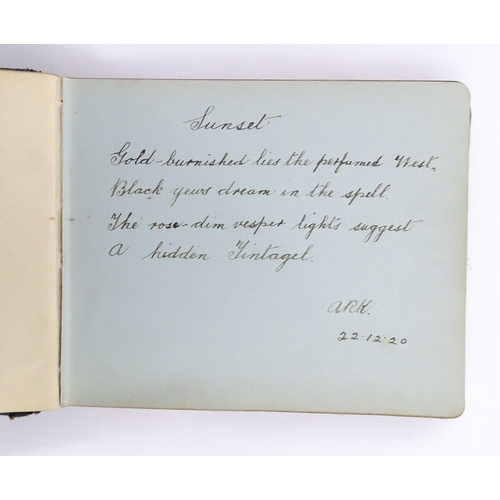 Sunset
Gold-burnished lies the perfumed West,
Black yews dream in the spell.
The rose-dim vesper lights suggest
A hidden Tintagel.
ARK.
22.12.20